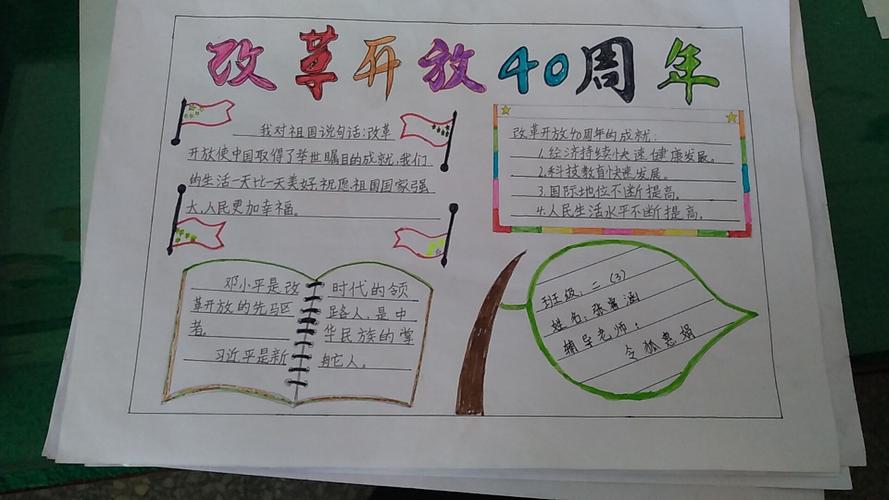 改革开放40周年
我对祖国说句话:改革
开放使中国取得了举世瞩目的成就,我们
的生活一天比一天美好,祝愿祖国国家强
大,人民更加幸福。
改革开放40周年的成就:
1.经济持续快速健康发展。
2.科技教育快速发展。
3.国际地位不断提高。
4.人民生活水平不断提高。
邓小平是改
革开放的先驱
者。
习近平是新
时代的领
路人,是中
华民族的掌
舵人。
班级:二(3)
姓名:张涵
辅导老师:
令狐惠娟